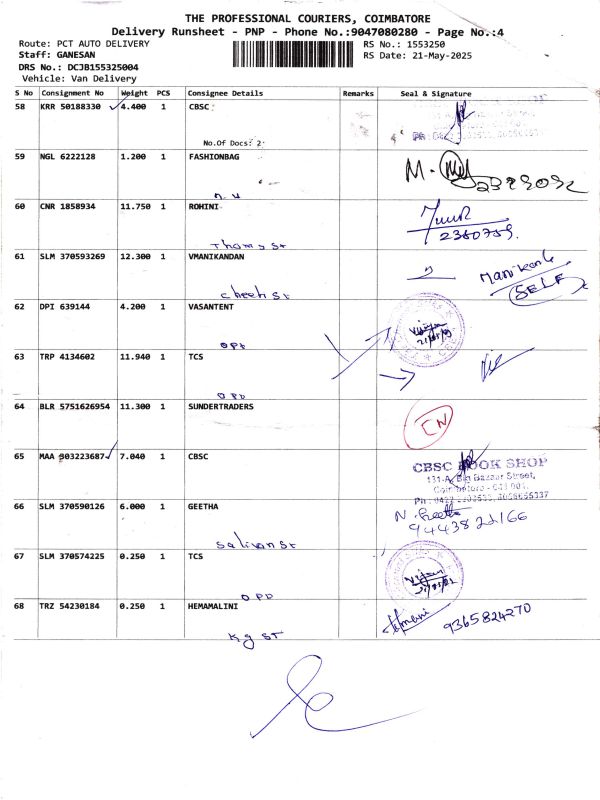 THE PROFESSIONAL COURIERS, COIMBATORE
Delivery Runsheet - PNP - Phone No.:9047080280 - Page No.:4
Route: PCT AUTO DELIVERY
RS No.: 1553250
Staff: GANESAN
RS Date: 21-May-2025
DRS No.: DCJB155325004
Vehicle: Van Delivery
S No Consignment No Weight PCS Consignee Details Remarks Seal & Signature
58 KRR 50188330 4.400 1 CBSC
No.Of Docs: 2
59 NGL 6222128 1.200 1 FASHIONBAG
60 CNR 1858934 11.750 1 ROHINI
2360759.
Thomas St
61 SLM 370593269 12.300 1 VMANIKANDAN
Manikank
SELF
62 DPI 639144 4.200 1 VASANTENT
63 TRP 4134602 11.940 1 TCS
OPP
64 BLR 5751626954 11.300 1 SUNDERTRADERS
CN
65 MAA 303223687 7.040 1 CBSC
CBSC BOOK SHOP
131-A, Big Bazaar Street,
66 SLM 370590126 6.000 1 GEETHA
N. Geetha
9443822166
67 SLM 370574225 0.250 1 TCS
OPP
68 TRZ 54230184 0.250 1 HEMAMALINI
9365824270
Kg St